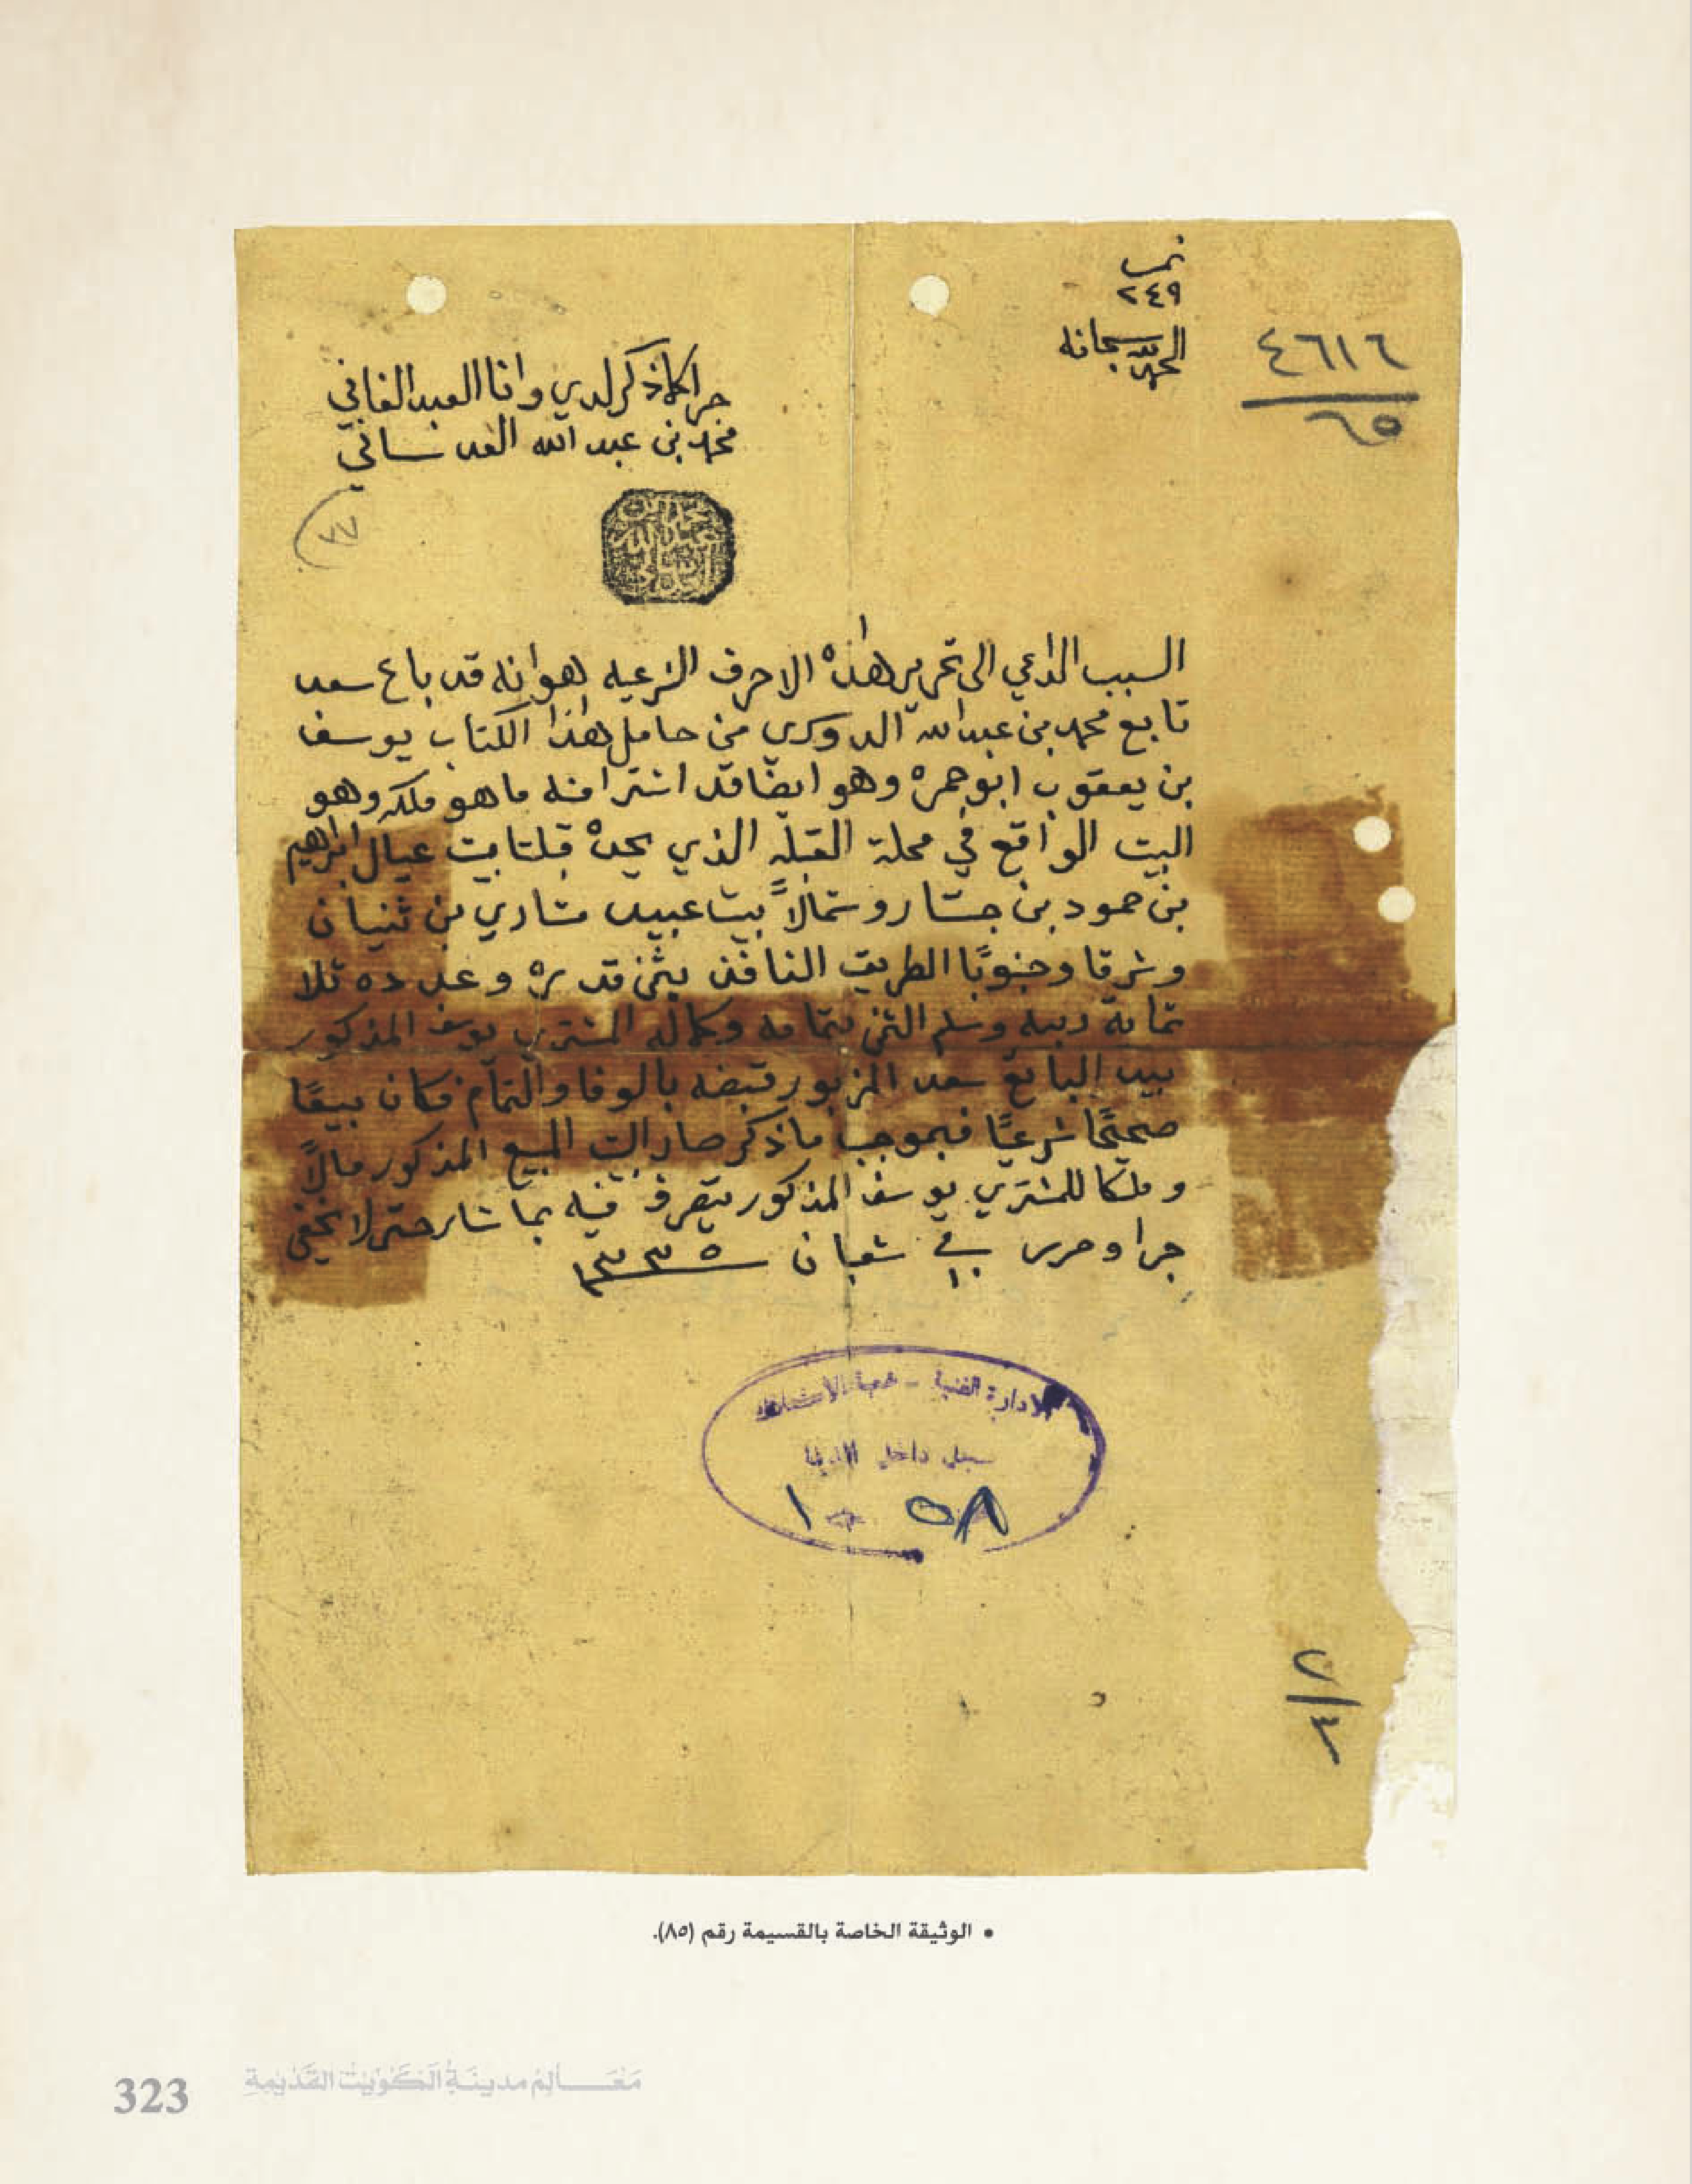 نمر
٢٤٩
الحمد لله سبحانه
٤٦١٦
٦٥
جرا كما ذكر لدي وانا العبد الفاني
محمد بن عبد الله العدساني
٣٧
السبب الداعي الى تحرير هذه الاحرف الشرعيه هو انه قد باع سعد
تابع محمد بن عبد الله الدوكري من حامل هذا الكتاب يوسف
بن يعقوب ابو حمره وهو ايضًا قد اشترا منه ما هو ملكه وهو
البيت الواقع في محلة القبله الذي يحده قبلتا بيت عيال ابراهيم
بن حمود بن جسار وشمالاً بيت عبيد مشاري بن ثنيان
وشرقا وجنوبًا الطريق النافذ بثمن قدره وعدده ثلا
ثماية ربيه وسلم الثمن بتمامه وكماله المشتري يوسف المذكور
بيد البايع سعد المزبور قبضه بالوفا والتمام فكان بيعًا
صحيحًا شرعيًا فبموجب ما ذكر صار البيت المبيع المذكور مالاً
وملكا للمشتري يوسف المذكور يتصرف فيه بما شا وحتى لا يخفى
جرا وحرر في ١٠ شعبان ١٣٣٥
الادارة الفنية - شعبة الاستملاك
سجل داخل المدينة
٥٨ ١
٢/٤
• الوثيقة الخاصة بالقسيمة رقم (٨٥).
323 مَعَالِمُ مدينَةِ الكُوَيْت القَدْيمَةِ